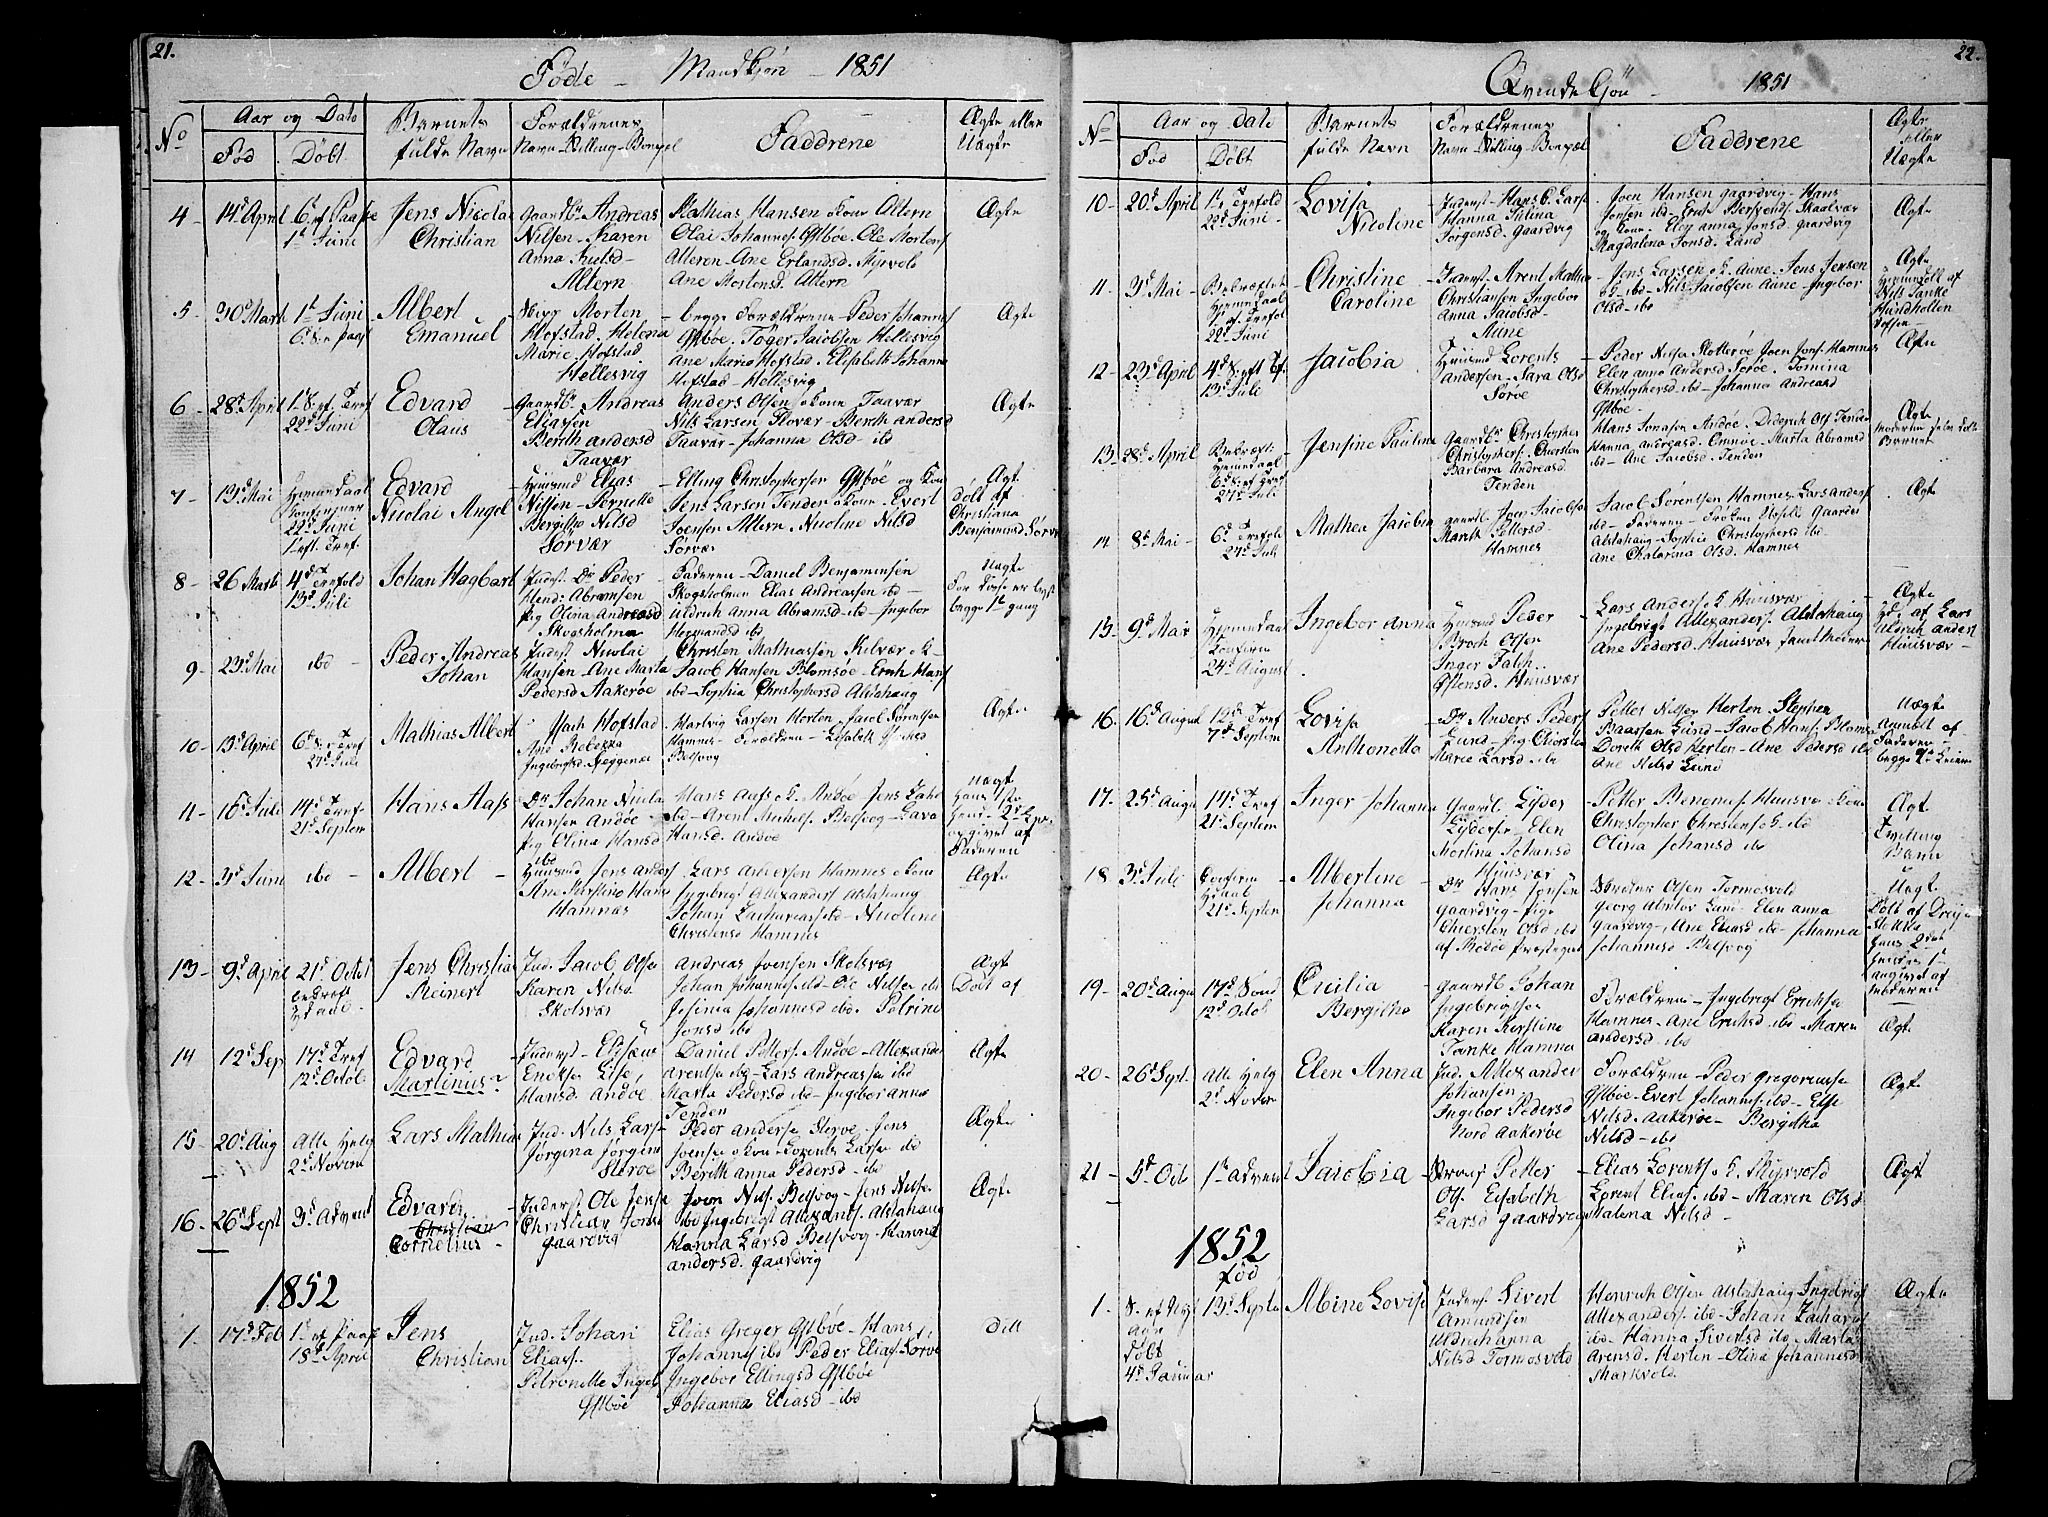 21.
Føde - Mandkjøn - 1851
No
Aar og Dato
Fød
Døbt
Barnets
fulde Navn
Forældrenes
Navn-Stilling-Bopæl
Faddrene
Ægte eller
Uægte
4 - 14d April 6 S. ef Paaske
1d Juni
Jens Nicolai
Christian
Gaardbr Andreas
Nilsen - Karen
Anna Nilsd -
Altern
Mathias Hansen o kone Altern
Olai Johannes. Østbøe. Ole Mortens
Alteren - Ane Erlandsd. Myrvold
Ane Mortensd. Altern
Ægte
5 - 30d Marts 1d Juni
6 S. ef paas
Albert
Emanuel
Morten
Hofstad. Helena
Marie Hofstad.
Hellesvig
begge Forældrene - Peder Johannes
Østbøe. Tøger Jacobsen Hellesvig
Ane Maria Hofstad - Elisabeth Johanna
Hofstad - Hellesvig
Ægte
6 - 28d April 1 S. ef. Tref
22d Juni
Edvard
Olaus
Gaardbr. Andreas
Eliassen
Berith andersd
Taavær
Anders Olsen o kone Taavær
Nils Larsen Flovær - Berith andersd
Taavær - Johanna Olsd - ibd
Ægte
7 - 13d Mai Hjemmedaab
22d Juni
1 eft. Tref.
Edvard
Nicolai Angel
Huusmd Elias
Nilsen - Pernelle
Bergitte Nilsd
Sørvær
Elling Christophersen Østbøe og kone
Jens Larsen Tenden o kone - Evert
Joensen Altern - Nicoline Nilsd
Sørvær
Ægt
døbt af
Christiana
Benjaminsd Sørvær
8 - 26 Marts 4d Trefold
13d Juli
Johan Hagbart
Inderst. Dr Peder
Hend: Abramsen
Pig Olina Andreasd
Skogsholmen
Faderen - Daniel Benjaminsen
Skogsholmen Elias Andreassen ibd -
Uldrich Anna Abramsd ibd - Ingebor
Hermandsd ibd
Uagte
begge 1ste gang
9 - 23d Mai ibd -
Peder Andreas
Johan
Inderst Nicolai
Hansen - Ane Marta
Pedersd Aakerøe
Christen Mathiassen Kilvær o K -
Jacob Hansen Blomsøe - Erich Hans
ibd - Sophia Christophersd Alstahaug
Ægte
10 - 13d April 6d S. ef Tref
27d Juli
Mathias Albert
Hofstad
Ane Rebekka
Ingebrigtsd
Hartvig Larsen Horten - Jacob Sørensen
Hamnes - Forældren - Elisabeth
Belsvog
11 - 16d Juli 14d Tref
21d Septem
Hans Aafs
Dr Johan Nicola
Hansen Andøe
Pig Olina Hansd
ibd
Hans Aafs o K. Andøe Jens
ibd - Arent Michels. Belsvog - Lava
Hansd. Andøe
Uagt
Hans 1ste
Hend. 2d
opgivet af
Faderen
12 - 3d Juni ibd -
Albert -
Huusmd Jens Anders
Ane Kirstine Hans
Hamnæs
Lars Andersen Hamnes o kone
Ingebrigt Allexanders Alstahaug
Johan Zachariasen ibd - Nicoline
Christensd Hamnes
Ægte
13 - 9d April 21d Octob
Jens Christian
Reinert
Ind. Jacob Olsen
Karen Nilsd
Skolsvær
Andreas Joensen Skolsvær
Johan Johannes ibd - Ole Nilsen ibd
Jesinia Johannesd ibd. Petrine
Jonsd ibd
Ægt
Døbt af
14 12d Sep 17d Tref
12d Octob
Edvard
Martinus
Inderst - Elisæus
Ericksen Else
Hansd. Andøe
Daniel Petters. Andøe - Allexander
Arentsen ibd - Lars Andreassen ibd
Marta Pedersd ibd - Ingebor anna
Tenden
Ægte
15 - 20d Aug Alle Helg
2d Novem
Lars Mathias
Ind. Nils Lars
Jørgina Jørgens
Sterøe
Peder Andersen Sterøe. Jens
Joensen o kone - Lorents Larsen ibd
Berith anna Pedersd - ibd
Ægte
16 - 26d Sept 3d Advent
Edvard
Christian
Cornelius -
Inderst Ole Jensen
Christian Jonsd
Gaardvig
Joen Nils. Belsvog - Jens Nilsen
ibd Ingebrigt Alexanders. Alstahaug
Hanna Larsd Belsvog - Hanna
andersd. Gaardvig
Ægte
1852
1. 17d Feb 1 S. ef Paas
18d April
Jens
Christian
Ind. Johan
Eliass..
Petronelle Ingeb
Østbøe
Elias Greger Østbøe - Hans
Johannes ibd Peder Elias. Sørvæ
Ingebor Ellingsd Østbøe
Johanna Eliasd - ibd
ditt
22.
Qvindekjøn - 1851
No
Aar og Dato
Fød
Døbt
Barnets
fulde Navn
Forældrenes
Navn-Stilling-Bopæl
Faddrene
Ægte
eller
Uægte
10 - 20d April 1 S. Trefold
22d Juni
Lovisa
Nicoline
Inderst - Hans C. Lars
Hanna Julina
Jørgensd. Gaardvig
Joen Hansen Gaardvig - Hans
Jonsen ibd - Bersvends. Skaalvær
og kone. Elen anna Jonsd. Gaardvig
Magdalena Jonsd. Lund
Ægte
11 - 3d Mai -
22d Juni
Christine
Caroline
Inderst - Arent Mathias
Christiansen Ingebor
Anna Jacobsd -
Aune
Jens Larsen o K. Aune. Jens Jensen
o K - ibd - Nils Jacobsen Aune - Ingebor
Olsd - ibd
Ægte
Hjemmedøbt af
Nils Tanke
Hundholten
12 - 23d April 4d S. eft Tref.
13d Juli
Jacobia
Huusmd Lorents
Andersen - Sara Olsd
Sørøe
Peder Nilsen Slotterøe Joen Jons. Hamnes
Elen anna Andersd Sørøe. Tomina
Christophersd ibd - Johanna Andreasd
Østbøe
Ægte
13 - 28d April
Hjemmedaab
6d S. ef Tref
27d Juli
Jensine Paulina
Gaardbr Christopher
Christophers. Chiersten
Barbara Andreasd.
Tenden
Hans Jonasen Andøe. Diderich Ols Tenden
Hanna Andreasd. Omnøe. Marta Abramsd
ibd - Ane Jacobsd. Tenden
Ægte
Moderen selv døbt
Barnet
14 8d Mai - 6d Trefold
27d Juli
Mathea Jacobia
Gaardb. Joen Jacobsen
Marith Pettersd -
Hamnes
Jacob Sørentsen Hamnes. Lars anders
ibd - Faderen - Frøken Gaarder
Alstahaug - Sophia Christophersd ibd.
Ane Chatarina Olsd. Hamnes
Ægt
15 - 9d Mai Hjemmedaab
Confirm
24d August
Ingebor Anna
Huusmd Peder
Broch Olsen
Inger Falch..
Østensd. Huusvær
Lars Anders. o K Huusvær
Ingebrigt Allexanders. Alstahaug
Ane Pedersd Huusvær samt Moderen
Ægte
Hd. af Lars
Uldrich anders
Huusvær -
16 - 16d August 12d Tref
7d Septem
Lovisa
Anthonetta
Dr Anders Peders
Lund - Pig Chiersten
Marie Larsd ibd
Petter Nilsen Herten. Stephen
Baassen Lund - Jacob Hans. Blomsø
Dorith Olsd Herten - Ane Pedersd ibd
Ane Nilsd Lund
Uægte
Anmelt af
Faderen -
17. 25d Augu 14d Tref
21d Septem
Inger Johanna
Gaardb. Lyder
Lydersen - Elen
Mortina Johansd
Huusvær
Petter Benonis. Huusvær o kone
Christopher Christens o K - ibd
Olina Johansd ibd
Ægt
Tvilling
Barn
18 3d Juli Confirm
Hj. daab
21d Septem
Albertine
Johanna
Dr Hans Jonsen
Gaardvig - Pige
Chiersten Olsd ibd
af Bodøe præstegiel
Olsen Tormosvold
Georg Lund - Elen anna
Gaardvig - Ane Eliasd ibd - Johanna
Johannisd Belsvog
Uagt
Døbt af Dreje
Stokke
hans 2det
hendes 1ste
angivet af
Moderen
19 - 20d Augu 17d Sønd
12d Octob
Cicilia
Bergitha
Gaardb. Johan
Ingebrigtsen
Karen Kirstine
Tanke Hamnes
Forældren - Ingebrigt Ericksen
Hamnes - Ane Erichsd ibd. Maren
Andersd - ibd
Ægt
20 - 26d Sept. Alle Helg
2d Novem
Elen Anna
Ind. Allexander
Johansen
Ingebor Pedersd
Nord Aakerøe
Forældren - Peder Gregoriusen
Østbøe - Evert Johannes. ibd - Else
Nilsd. Aakerøe - Bergitha
Nilsd - ibd
Ægte
21 - 5d Octb 1ste Advent
Jacobia
Petter
Ols. Elisabeth
Larsd Gaardvig
Elias Lorents o K. Myrvold
Lorent Elias. ibd - Maren Olsd
Malena Nilsd -
Ægt
1852
1. S. ef Nyt
Aar
Døbt
4d Januar
Fød
13d Septem
Albine Lovise
Inderst Sivert
Amundsen
Uldrichanna
Nilsd Tormosvold
Henrich Olsen Alstahaug Ingebrigt
Allexanders. ibd - Johan Zacharias
ibd - Hanna Sivertsd ibd - Marta
Arensd. Herten - Olina Johannesd
Markvold
Ægte